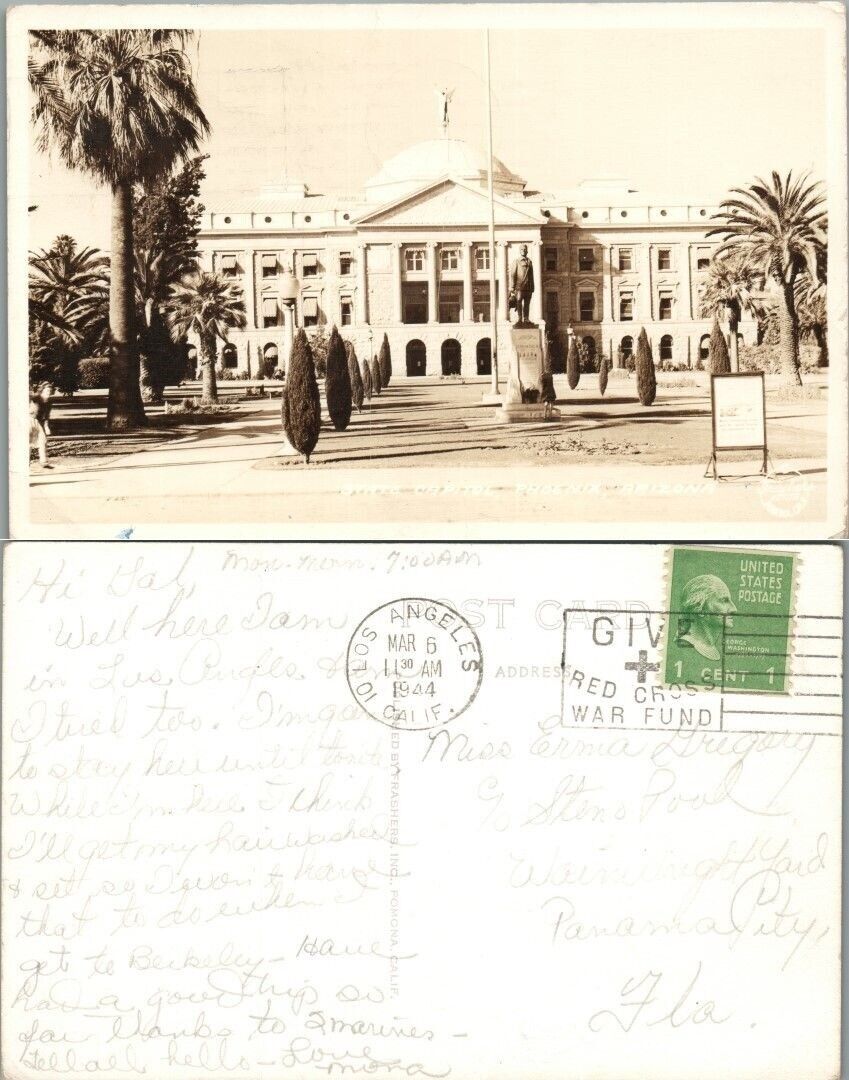 STATE CAPITOL PHOENIX, ARIZONA
Mon. morn. 7:00 AM
Hi Gal,
Well here I am
in Los Angles
I tired too. I'm
to stay here until
While I'm here I think
I'll get my hair washed
& set so I won't have
that to do when I
get to Berkeley - Have
had a good trip so
far thanks to 2 marines -
Tell all hello - Love
Mona
POST CARD
ADDRESS
PUBLISHED BY FRASHERS INC., POMONA, CALIF.
LOS ANGELES
10
MAR 6
11 30 AM
1944
CALIF.
GIVE
RED CROSS
WAR FUND
UNITED
STATES
POSTAGE
GEORGE
WASHINGTON
1 CENT 1
Miss Erma Gregory
c/o Steno Pool
Wainwright Yard
Panama City,
Fla.